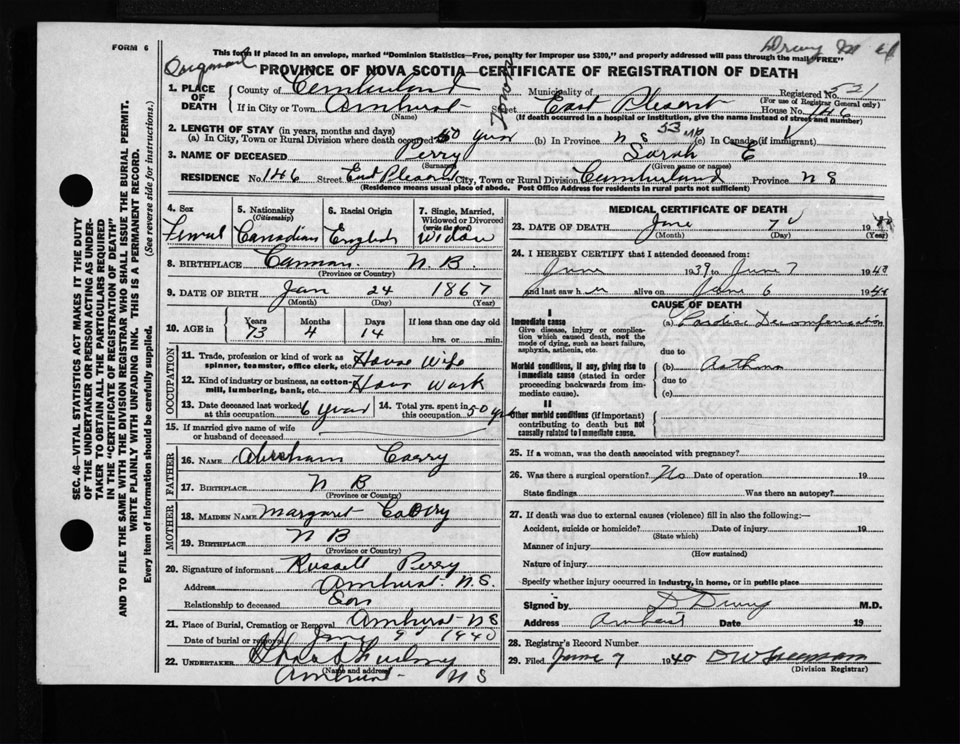 FORM 6
This form if placed in an envelope, marked "Dominion Statistics—Free, penalty for improper use $300," and properly addressed will pass through the mail "FREE"
PROVINCE OF NOVA SCOTIA—CERTIFICATE OF REGISTRATION OF DEATH
1. PLACE OF DEATH
County of Cumberland Municipality of Registered No. 521
(For use of Registrar General only)
If in City or Town Amherst Street East Plesent House No. 146
(Name) (If death occurred in a hospital or institution, give the name instead of street and number)
2. LENGTH OF STAY (in years, months and days)
(a) In City, Town or Rural Division where death occurred 50 years (b) In Province N S 53 (c) In Canada (if immigrant)
3. NAME OF DECEASED Perry Sarah E
(Surname) (Given name or names)
RESIDENCE No. 146 Street East Plesent City, Town or Rural Division Cumberland Province N S
(Residence means usual place of abode. Post Office Address for residents in rural parts not sufficient)
4. Sex Female
5. Nationality (Citizenship) Canadian
6. Racial Origin English
7. Single, Married, Widowed or Divorced (write the word) Widow
8. BIRTHPLACE N. B.
(Province or Country)
9. DATE OF BIRTH Jan 24 1867
(Month) (Day) (Year)
10. AGE in Years 73 Months 4 Days 14 If less than one day old hrs. or min.
OCCUPATION
11. Trade, profession or kind of work as spinner, teamster, office clerk, etc. House Wife
12. Kind of industry or business, as cotton-mill, lumbering, bank, etc. Hous Work
13. Date deceased last worked at this occupation 6 years 14. Total yrs. spent in this occupation 50 yrs
15. If married give name of wife or husband of deceased
FATHER
16. NAME Abraham
17. BIRTHPLACE N B
(Province or Country)
MOTHER
18. MAIDEN NAME Margaret
19. BIRTHPLACE N B
(Province or Country)
20. Signature of informant Russell Perry
Address Amherst N.S.
Relationship to deceased Son
21. Place of Burial, Cremation or Removal Amherst N S
Date of burial or removal June 9 1940
22. UNDERTAKER
(Name and address)
Amherst N S
MEDICAL CERTIFICATE OF DEATH
23. DATE OF DEATH June 7 19
(Month) (Day) (Year)
24. I HEREBY CERTIFY that I attended deceased from:
June 1939 to June 7 1940
and last saw her alive on June 6 1940
CAUSE OF DEATH
I
Immediate cause (a) Cardiac Decompensation
Give disease, injury or complication which caused death, not the mode of dying, such as heart failure, asphyxia, asthenia, etc.
due to
Morbid conditions, if any, giving rise to immediate cause (stated in order proceeding backwards from immediate cause). (b) Asthma
due to
(c)
II
Other morbid conditions (if important) contributing to death but not causally related to immediate cause.
25. If a woman, was the death associated with pregnancy?
26. Was there a surgical operation? No Date of operation 19
State findings Was there an autopsy?
27. If death was due to external causes (violence) fill in also the following:—
Accident, suicide or homicide? Date of injury 19
(State which)
Manner of injury
(How sustained)
Nature of injury
Specify whether injury occurred in industry, in home, or in public place
Signed by M.D.
Address Amherst Date 19
28. Registrar's Record Number
29. Filed June 7 1940
(Division Registrar)
SEC. 46—VITAL STATISTICS ACT MAKES IT THE DUTY
OF THE UNDERTAKER OR PERSON ACTING AS UNDER-
TAKER TO OBTAIN ALL THE PARTICULARS REQUIRED
IN THE "CERTIFICATE OF REGISTRATION OF DEATH"
AND TO FILE THE SAME WITH THE DIVISION REGISTRAR WHO SHALL ISSUE THE BURIAL PERMIT.
WRITE PLAINLY WITH UNFADING INK. THIS IS A PERMANENT RECORD.
Every item of information should be carefully supplied. (See reverse side for instructions.)